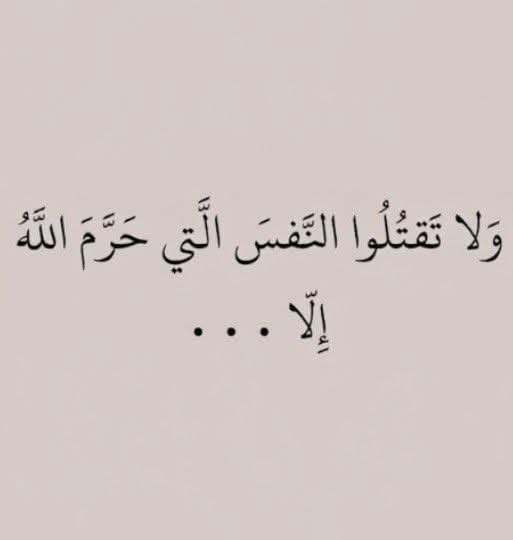 وَلا تَقتُلُوا النَّفسَ الَّتي حَرَّمَ اللَّهُ
إِلّا . . .